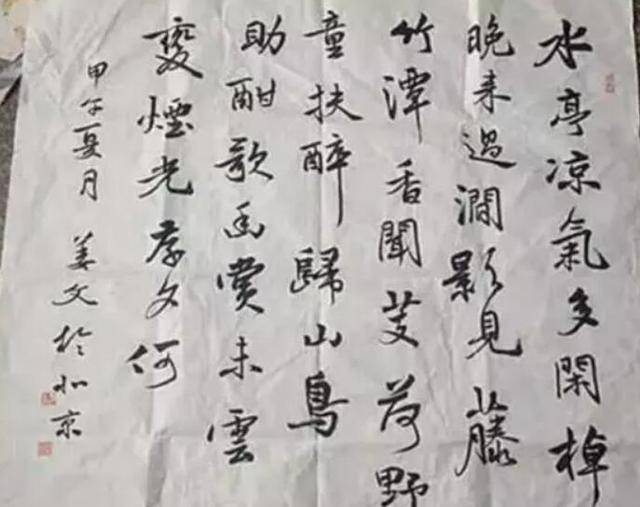 水亭凉氣多閑棹
晚来過澗影見藤
竹潭香聞芰荷野
童扶醉歸山鳥
助酣歌幽賞未雲
煙光夕何
甲午夏月 姜文於北京